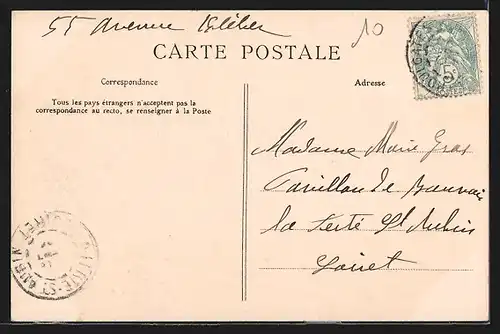 55 Avenue Kléber
10
CARTE POSTALE
Correspondance
Adresse
Tous les pays étrangers n'acceptent pas la
correspondance au recto, se renseigner à la Poste
5
Madame Marie Gras
Pavillon de Beauvais
La Ferté St Aubin
Loiret